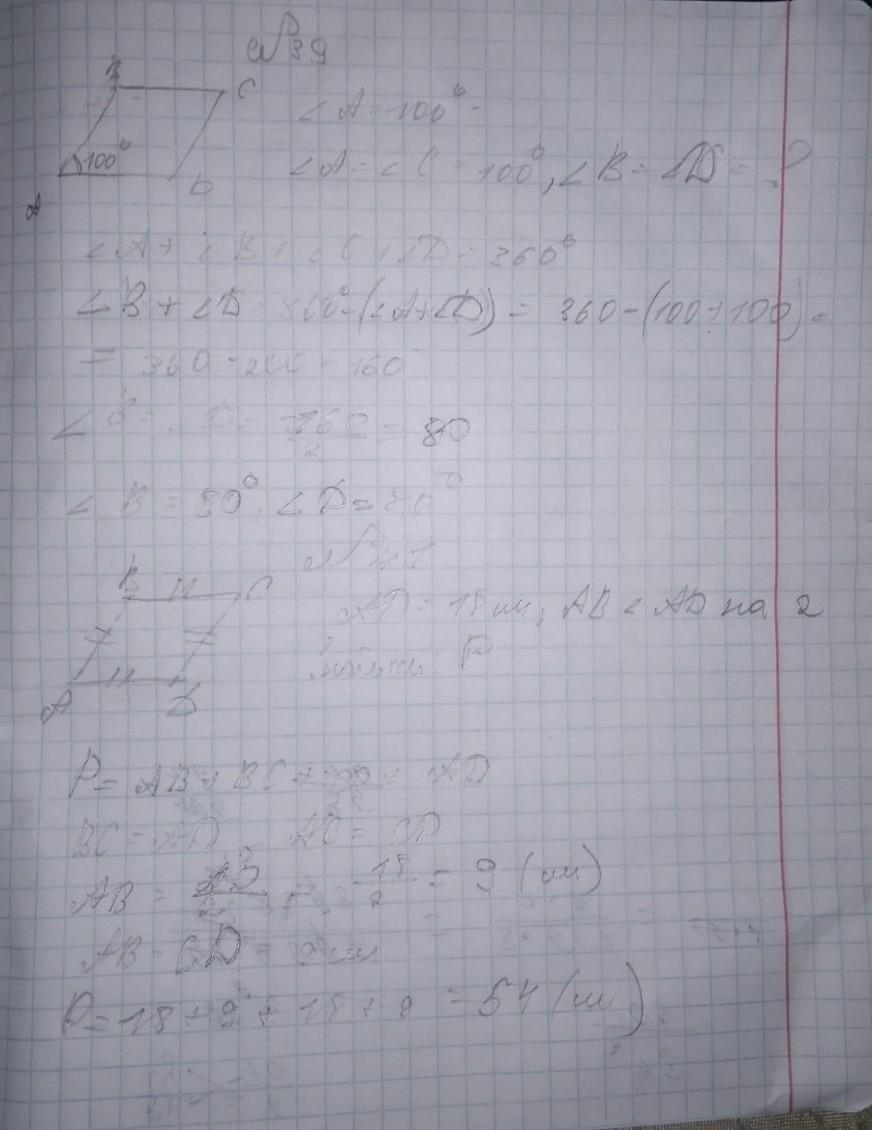 №39
B C
∠A = 100°
100°
A D
∠A = ∠C = 100°, ∠B = ∠D = ?
∠A + ∠B + ∠C + ∠D = 360°
∠B + ∠D = 360° - (∠A + ∠D) = 360 - (100 + 100) =
= 360 - 200 = 160
∠B = ∠D = 160/2 = 80
∠B = 80°, ∠D = 80°
№41
B C
AD = 18 см, AB < AD на 2
P
A D
P = AB + BC + AD
BC = AD AC = CD
AB = 18/2 = 9 (см)
AB = CD = 9 см
P = 18 + 9 + 18 + 9 = 54 (см)